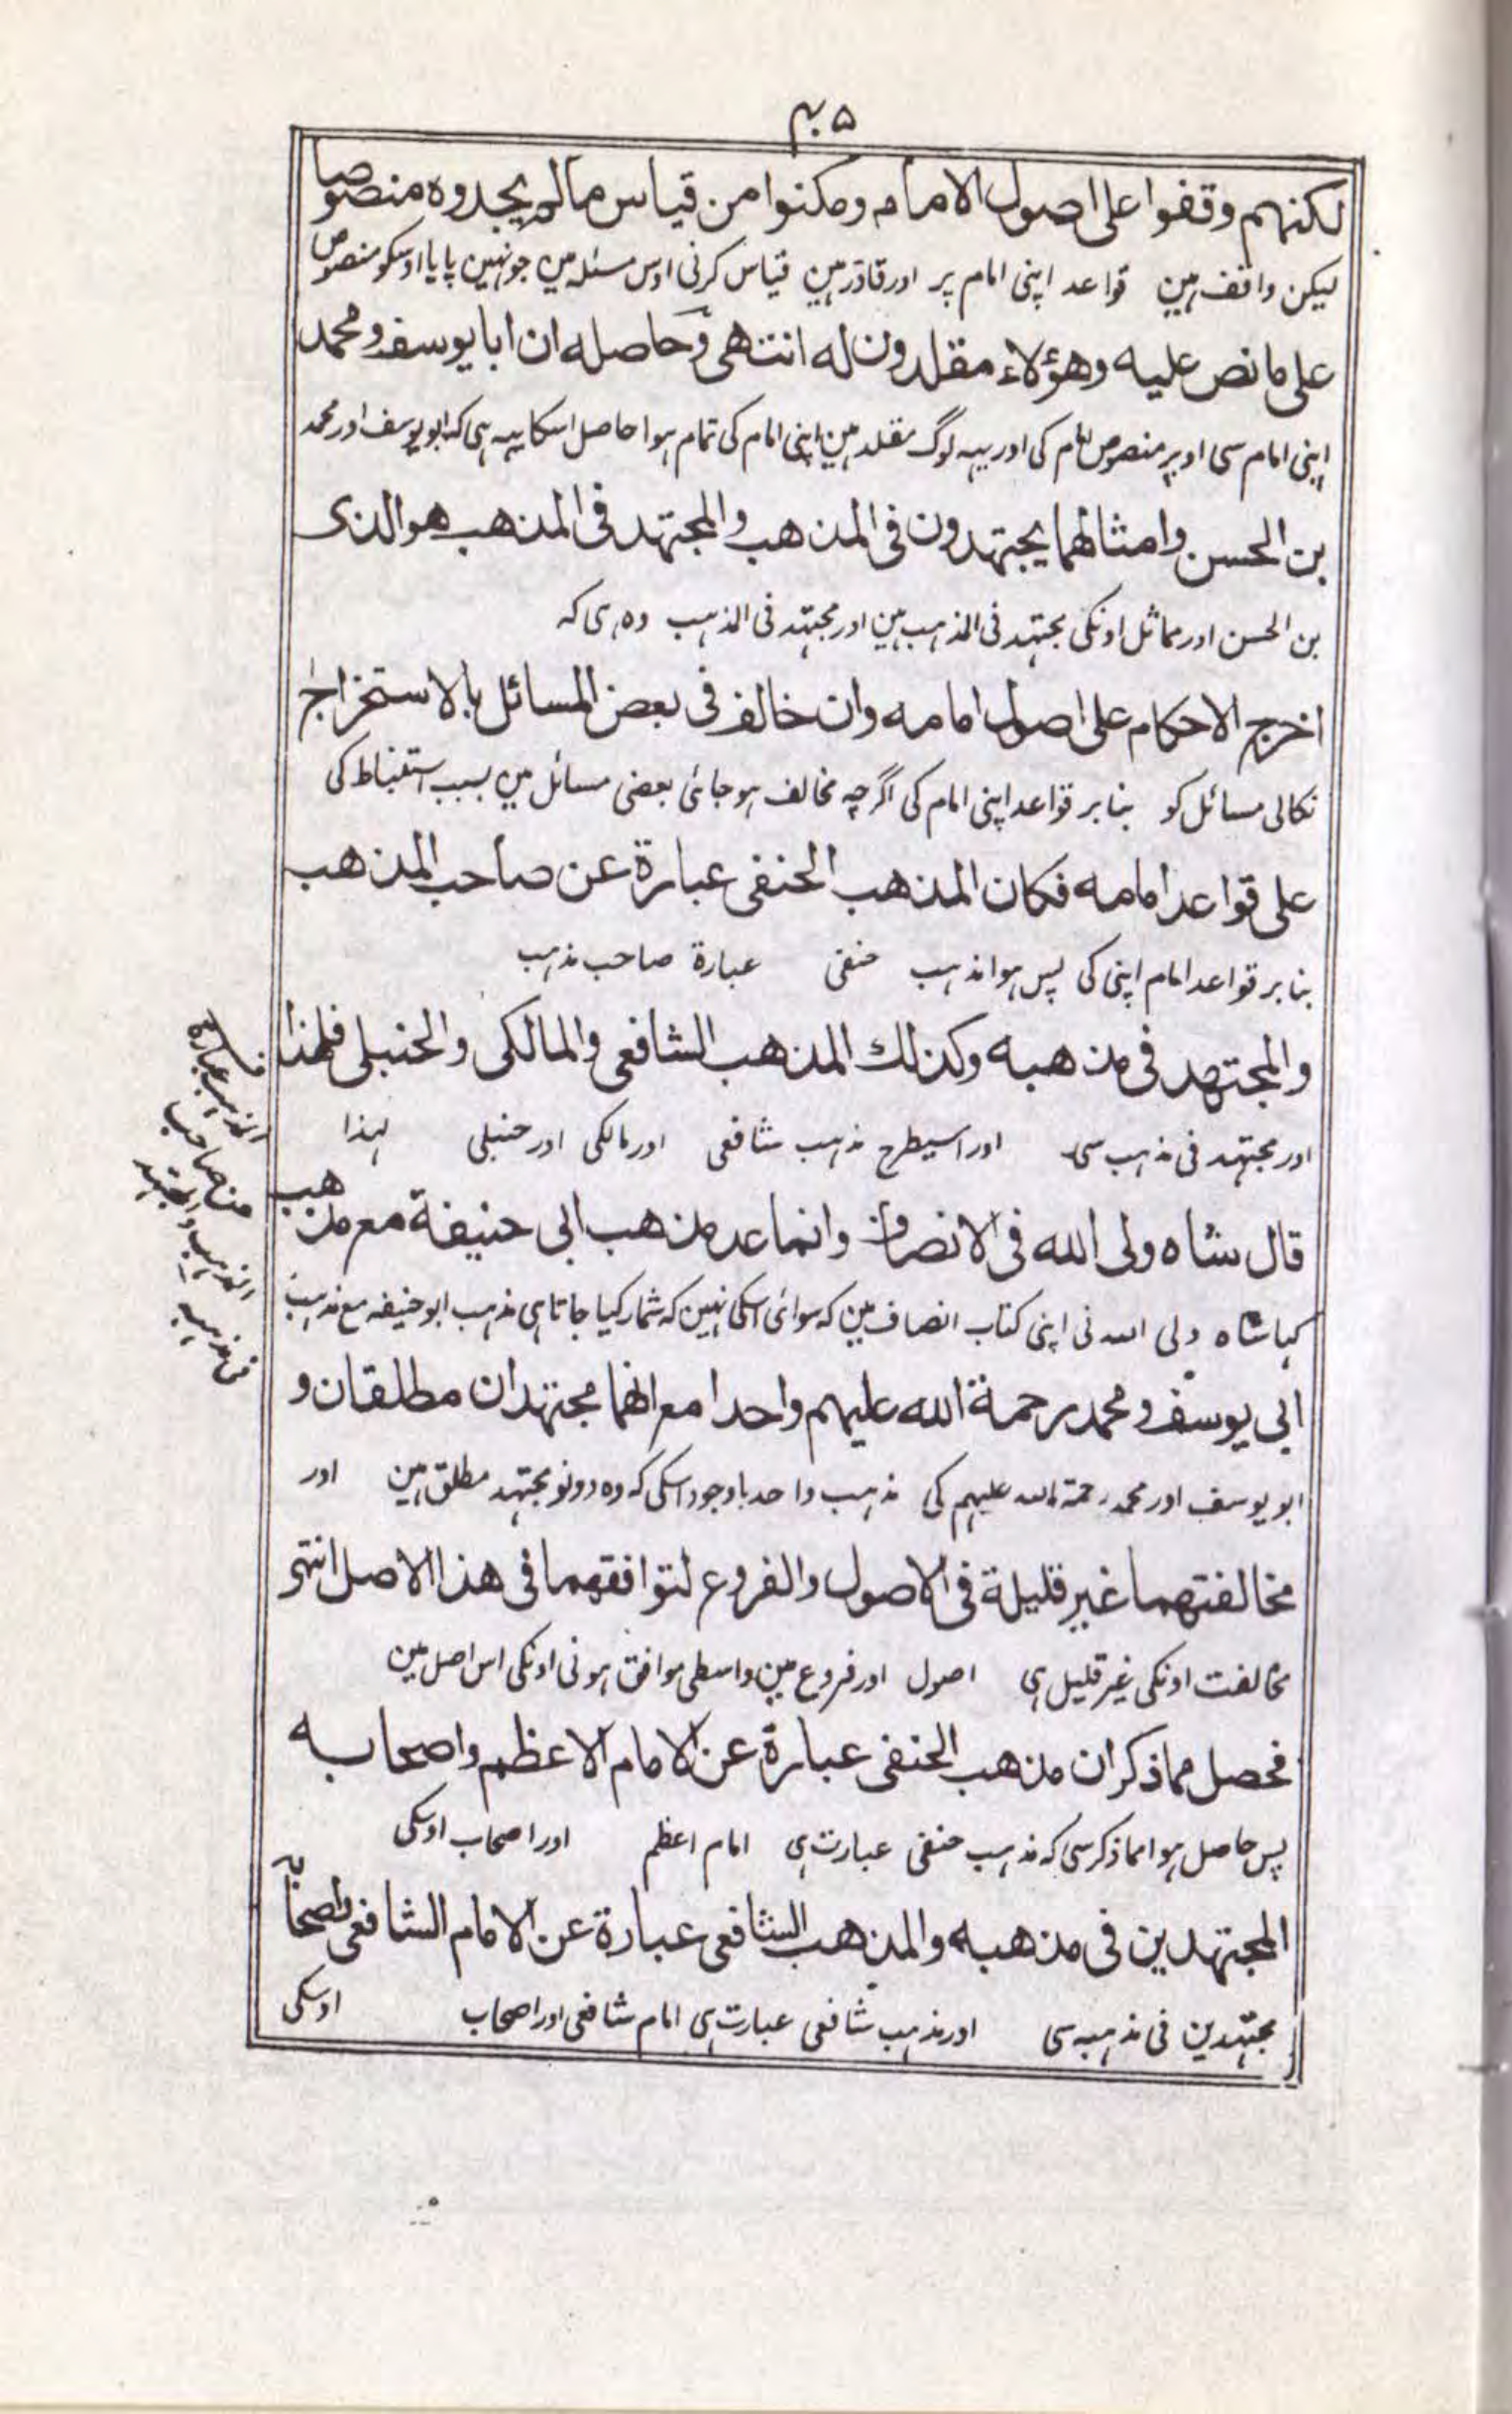 ۴۵
لكنهم وقفوا على اصول الامام ومكنوا من قياس مالم يجدوه منصوصا
لیکن واقف ہین قواعد اپنی امام پر اور قادر ہین قیاس کرنی اوس مسئلہ مین جو نہین پایا اوسکو منصوص
على ما نص عليه وهؤلاء مقلدون له انتهى وحاصله ان ابا يوسف ومحمد
اپنی امام سی اوپر منصوص امام کی اور یہہ لوگ مقلد ہین اپنی امام کی تمام ہوا حاصل اسکا یہہ ہی کہ ابو یوسف اور محمد
بن الحسن وامثالهما يجتهدون فى المذهب والمجتهد فى المذهب هو الذى
بن الحسن اور مماثل اونکی مجتہد فی المذہب ہین اور مجتہد فی المذہب وہ ہی کہ
اخرج الاحكام على اصول امامه وان خالف فى بعض المسائل بالاستخراج
نکالی مسائل کو بنا بر قواعد اپنی امام کی اگرچہ مخالف ہو جائی بعضی مسائل مین بسبب استنباط کی
على قواعد امامه فكان المذهب الحنفى عبارة عن صاحب المذهب
بنا بر قواعد امام اپنی کی پس ہوا مذہب حنفی عبارۃ صاحب مذہب
والمجتهد فى مذهبه وكذلك المذهب الشافعى والمالكى والحنبلى فلهذا
اور مجتہد فی مذہب سی اور اسیطرح مذہب شافعی اور مالکی اور حنبلی لہذا
قال شاه ولى الله فى الانصاف وانما عد مذهب ابى حنيفة مع مذهب
کہا شاہ ولی اللہ نی اپنی کتاب انصاف مین کہ سوائی اسکی نہین کہ شمار کیا جاتا ہی مذہب ابو حنیفہ مع مذہب
ابى يوسف ومحمد رحمة الله عليهم واحدا مع انهما مجتهدان مطلقان و
ابو یوسف اور محمد رحمۃ اللہ علیہم کی مذہب واحد باوجود اسکی کہ وہ دونو مجتہد مطلق ہین اور
مخالفتهما غير قليلة فى الاصول والفروع لتوافقهما فى هذا الاصل انتهى
مخالفت اونکی غیر قلیل ہی اصول اور فروع مین واسطی موافق ہونی اونکی اس اصل مین
فحصل مما ذكر ان مذهب الحنفى عبارة عن الامام الاعظم واصحابه
پس حاصل ہوا مما ذکر سی کہ مذہب حنفی عبارت ہی امام اعظم اور اصحاب اوسکی
المجتهدين فى مذهبه والمذهب الشافعى عبارة عن الامام الشافعى واصحابه
مجتہدین فی مذہبہ سی اور مذہب شافعی عبارت ہی امام شافعی اور اصحاب اوسکی
المذہب عبارة
من صاحب
المذہب والمجتہد
فی مذہبہ